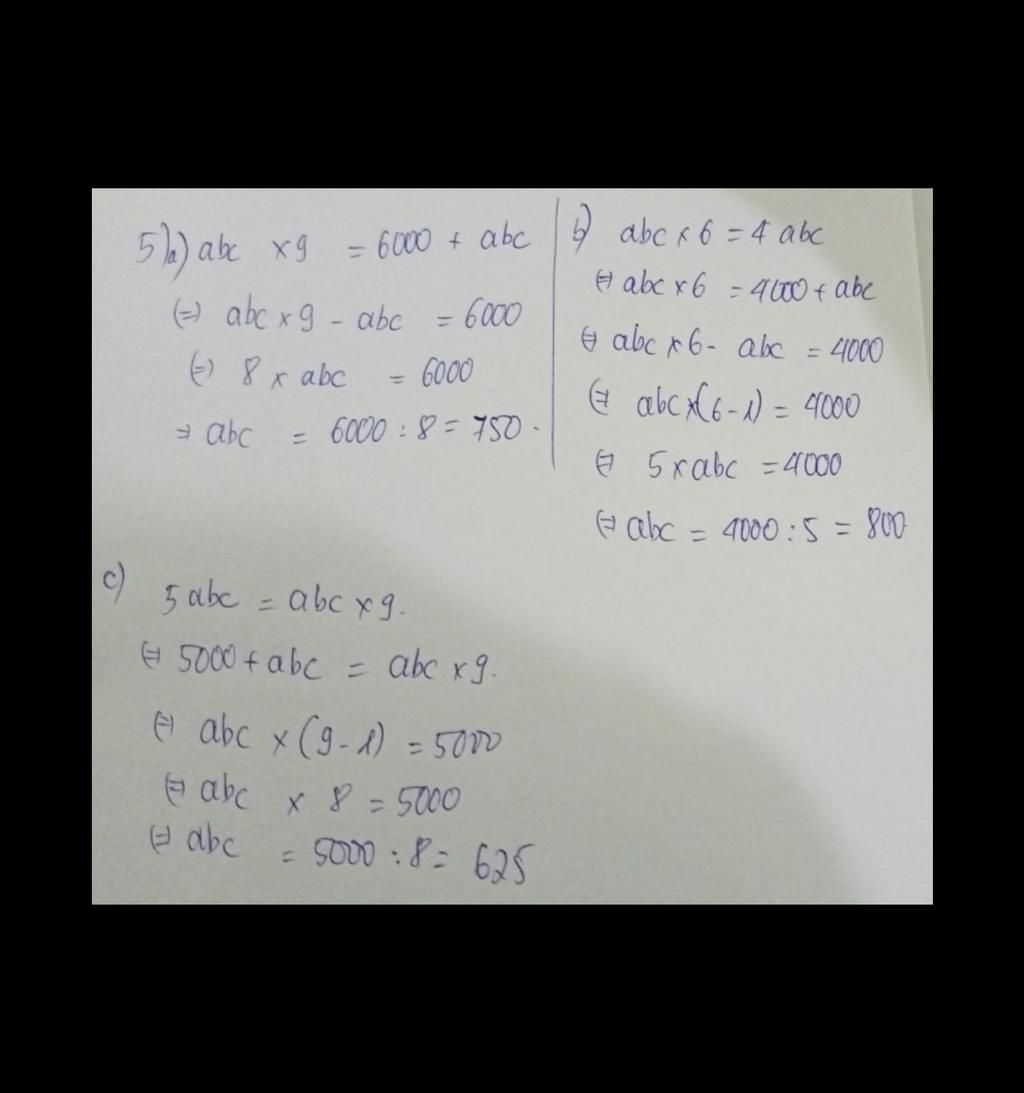 5)a) abc x 9 = 6000 + abc
(=) abc x 9 - abc = 6000
(=) 8 x abc = 6000
⇒ abc = 6000 : 8 = 750.
b) abc x 6 = 4 abc
⇔ abc x 6 = 4000 + abc
⇔ abc x 6 - abc = 4000
⇔ abc x (6 - 1) = 4000
⇔ 5 x abc = 4000
⇔ abc = 4000 : 5 = 800
c) 5 abc = abc x 9.
⇔ 5000 + abc = abc x 9.
⇔ abc x (9 - 1) = 5000
⇔ abc x 8 = 5000
⇔ abc = 5000 : 8 = 625